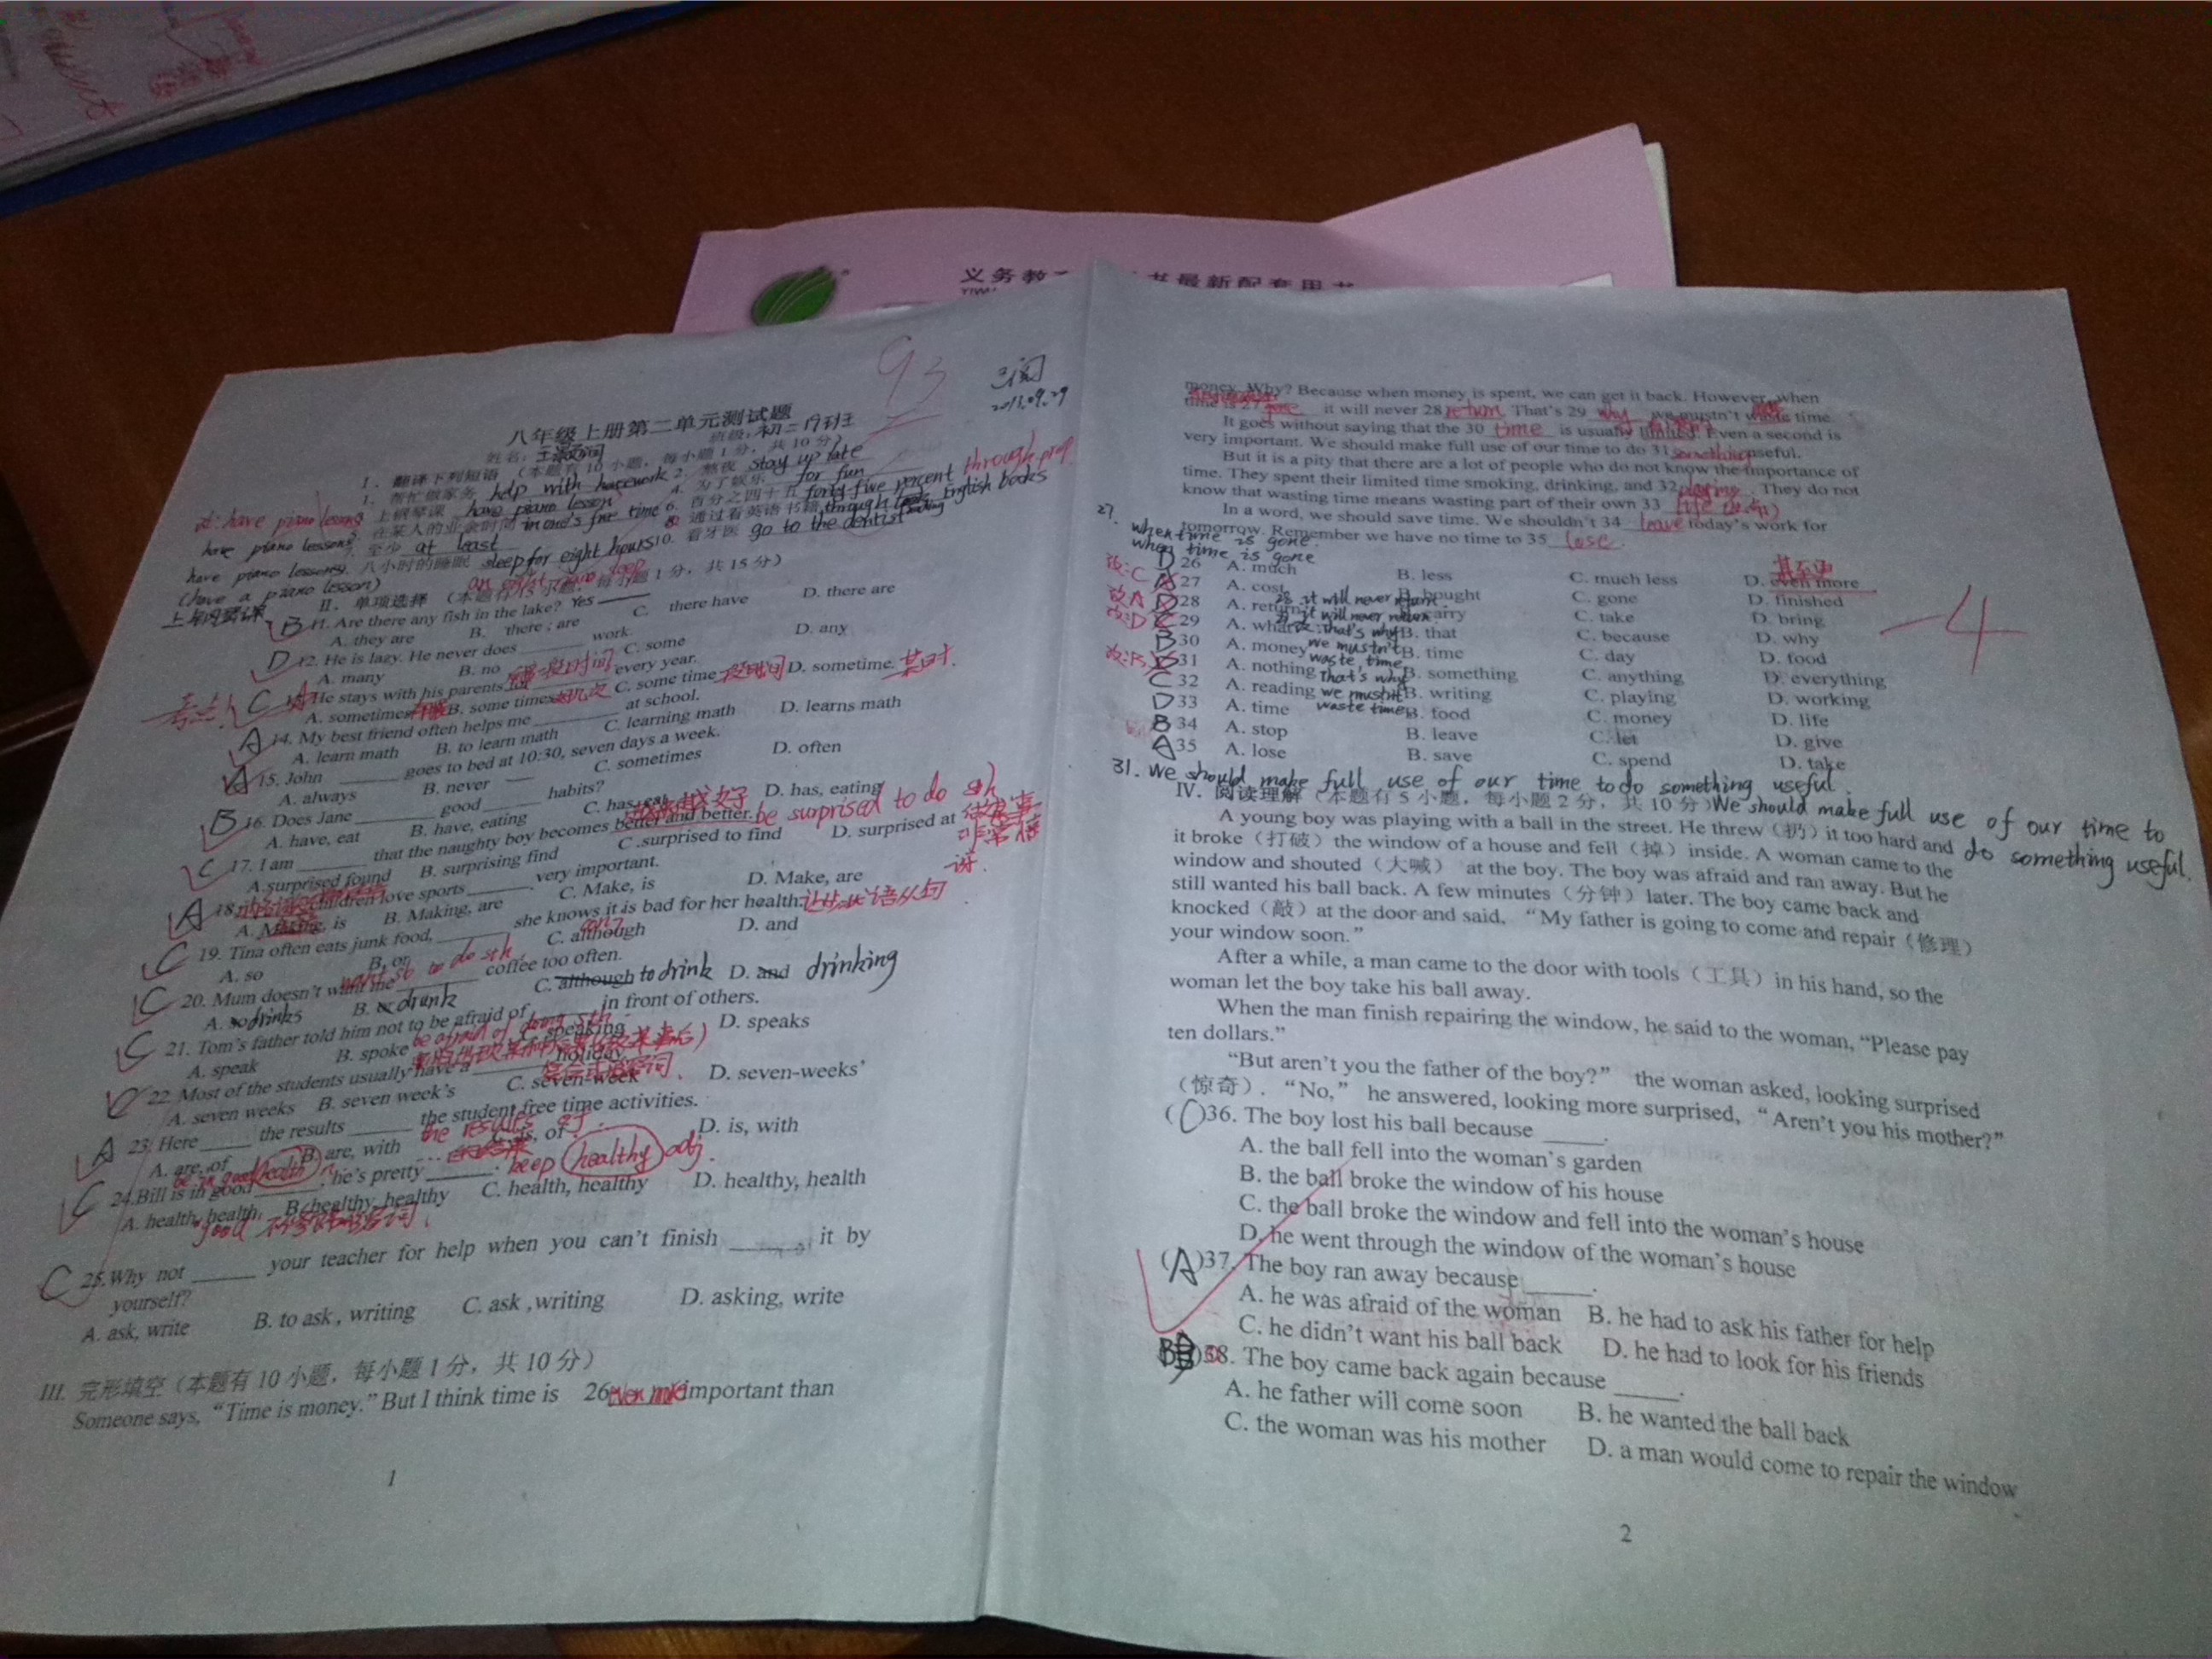 义务教
书最新配套用书
93
2013.09.29
八年级上册第二单元测试题
班级：初二19班
姓名：
I. 翻译下列短语（本题有10小题，每小题1分，共10分）
1. 帮忙做家务 help with housework 2. 熬夜 stay up late
上钢琴课 have piano lesson 4. 为了娱乐 for fun
5. 在某人的业余时间 in one's free time 6. 百分之四十五 forty-five percent through prep
7. 至少 at least 8. 通过看英语书籍 through English books
八小时的睡眠 sleep for eight hours 10. 看牙医 go to the dentist
改: have piano lessons
have piano lessons
have piano lessons
(have a piano lesson)
II. 单项选择（本题有15小题，每小题1分，共15分）
B 11. Are there any fish in the lake? Yes
A. they are B. there; are C. there have D. there are
D 12. He is lazy. He never does ______ work.
A. many B. no C. some D. any
C 13. He stays with his parents for ______ every year.
A. sometimes B. some times C. some time 一段时间 D. sometime. 某时.
A 14. My best friend often helps me ______ at school.
A. learn math B. to learn math C. learning math D. learns math
A 15. John ______ goes to bed at 10:30, seven days a week.
A. always B. never C. sometimes D. often
B 16. Does Jane ______ good ______ habits?
A. have, eat B. have, eating C. has, eat D. has, eating
C 17. I am ______ that the naughty boy becomes better and better. be surprised to do sth
A. surprised found B. surprising find C. surprised to find D. surprised at
A 18. children love sports ______ very important.
A. Making, is B. Making, are C. Make, is D. Make, are
C 19. Tina often eats junk food, ______ she knows it is bad for her health. 让步状语从句
A. so B. or C. although D. and
C 20. Mum doesn't want me ______ coffee too often.
want sb to do sth
A. so drinks B. or drink C. although to drink D. and drinking
C 21. Tom's father told him not to be afraid of ______ in front of others.
be afraid of doing sth
A. speak B. spoke C. speaking D. speaks
C 22. Most of the students usually have a ______ holiday.
A. seven weeks B. seven week's C. seven-week D. seven-weeks'
A 23. Here ______ the results ______ the student free time activities.
the results of
A. are, of B. are, with C. is, of D. is, with
C 24. Bill is in good ______, he's pretty ______. keep healthy adj.
A. health, health, B. healthy, healthy C. health, healthy D. healthy, health
C 25. Why not ______ your teacher for help when you can't finish ______ it by
yourself?
A. ask, write B. to ask, writing C. ask ,writing D. asking, write
III. 完形填空（本题有10小题，每小题1分，共10分）
Someone says, “Time is money.” But I think time is 26 even more important than
1
money. Why? Because when money is spent, we can get it back. However, when
time is 27 gone it will never 28 return That's 29 why we mustn't waste time.
It goes without saying that the 30 time is usually limited. Even a second is
very important. We should make full use of our time to do 31 something useful.
But it is a pity that there are a lot of people who do not know the importance of
time. They spent their limited time smoking, drinking, and 32 playing. They do not
know that wasting time means wasting part of their own 33 life
In a word, we should save time. We shouldn't 34 leave today's work for
tomorrow. Remember we have no time to 35 lose.
27. when time is gone
when time is gone
D 26 A. much B. less C. much less D. even more
改:C A 27 A. cost B. bought C. gone D. finished
改A D 28 A. return B. carry C. take D. bring
改:D C 29 A. what B. that C. because D. why
B 30 A. money B. time C. day D. food
改:B D 31 A. nothing B. something C. anything D. everything
C 32 A. reading B. writing C. playing D. working
D 33 A. time B. food C. money D. life
B 34 A. stop B. leave C. let D. give
A 35 A. lose B. save C. spend D. take
it will never return.
it will never return.
That's why
we mustn't
waste time.
That's why
we mustn't
waste time
-4
31. We should make full use of our time to do something useful.
IV. 阅读理解（本题有5小题，每小题2分，共10分）We should make full use of our time to
do something useful.
A young boy was playing with a ball in the street. He threw（扔）it too hard and
it broke（打破）the window of a house and fell（掉）inside. A woman came to the
window and shouted（大喊） at the boy. The boy was afraid and ran away. But he
still wanted his ball back. A few minutes（分钟）later. The boy came back and
knocked（敲）at the door and said, “My father is going to come and repair（修理）
your window soon.”
After a while, a man came to the door with tools（工具）in his hand, so the
woman let the boy take his ball away.
When the man finish repairing the window, he said to the woman, “Please pay
ten dollars.”
“But aren't you the father of the boy?” the woman asked, looking surprised
（惊奇）. “No,” he answered, looking more surprised, “Aren't you his mother?”
(C)36. The boy lost his ball because ______.
A. the ball fell into the woman's garden
B. the ball broke the window of his house
C. the ball broke the window and fell into the woman's house
D. he went through the window of the woman's house
(A)37. The boy ran away because ______.
A. he was afraid of the woman B. he had to ask his father for help
C. he didn't want his ball back D. he had to look for his friends
B )38. The boy came back again because ______.
A. he father will come soon B. he wanted the ball back
C. the woman was his mother D. a man would come to repair the window
2